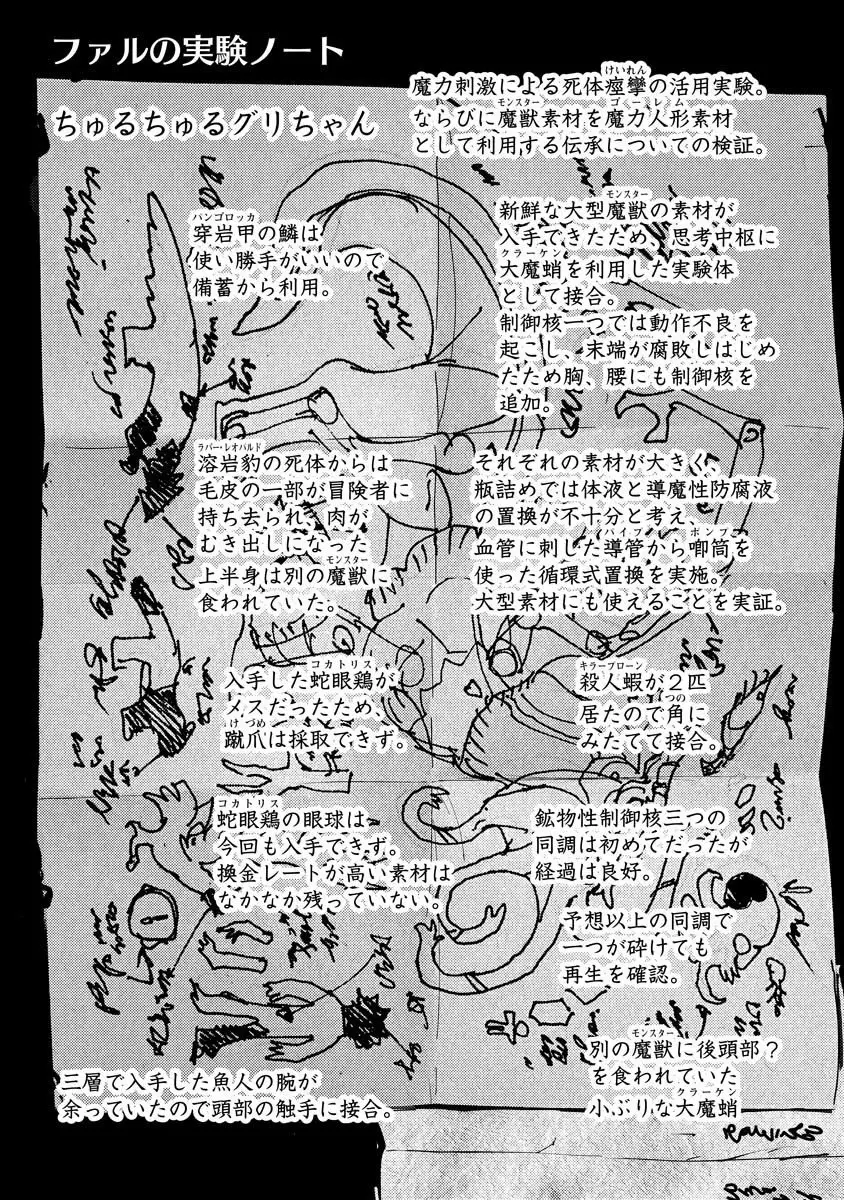 ファルの実験ノート
ちゅるちゅるグリちゃん
魔力刺激による死体痙攣の活用実験。
ならびに魔獣素材を魔力人形素材
として利用する伝承についての検証。
新鮮な大型魔獣の素材が
入手できたため、思考中枢に
大魔蛸を利用した実験体
として接合。
制御核一つでは動作不良を
起こし、末端が腐敗しはじめ
たため胸、腰にも制御核を
追加。
穿岩甲の鱗は
使い勝手がいいので
備蓄から利用。
溶岩豹の死体からは
毛皮の一部が冒険者に
持ち去られ、肉が
むき出しになった
上半身は別の魔獣に
食われていた。
それぞれの素材が大きく、
瓶詰めでは体液と導魔性防腐液
の置換が不十分と考え、
血管に刺した導管から喞筒を
使った循環式置換を実施。
大型素材にも使えることを実証。
入手した蛇眼鶏が
メスだったため、
蹴爪は採取できず。
殺人蝦が2匹
居たので角に
みたてて接合。
蛇眼鶏の眼球は
今回も入手できず。
換金レートが高い素材は
なかなか残っていない。
鉱物性制御核三つの
同調は初めてだったが
経過は良好。
予想以上の同調で
一つが砕けても
再生を確認。
三層で入手した魚人の腕が
余っていたので頭部の触手に接合。
別の魔獣に後頭部？
を食われていた
小ぶりな大魔蛸